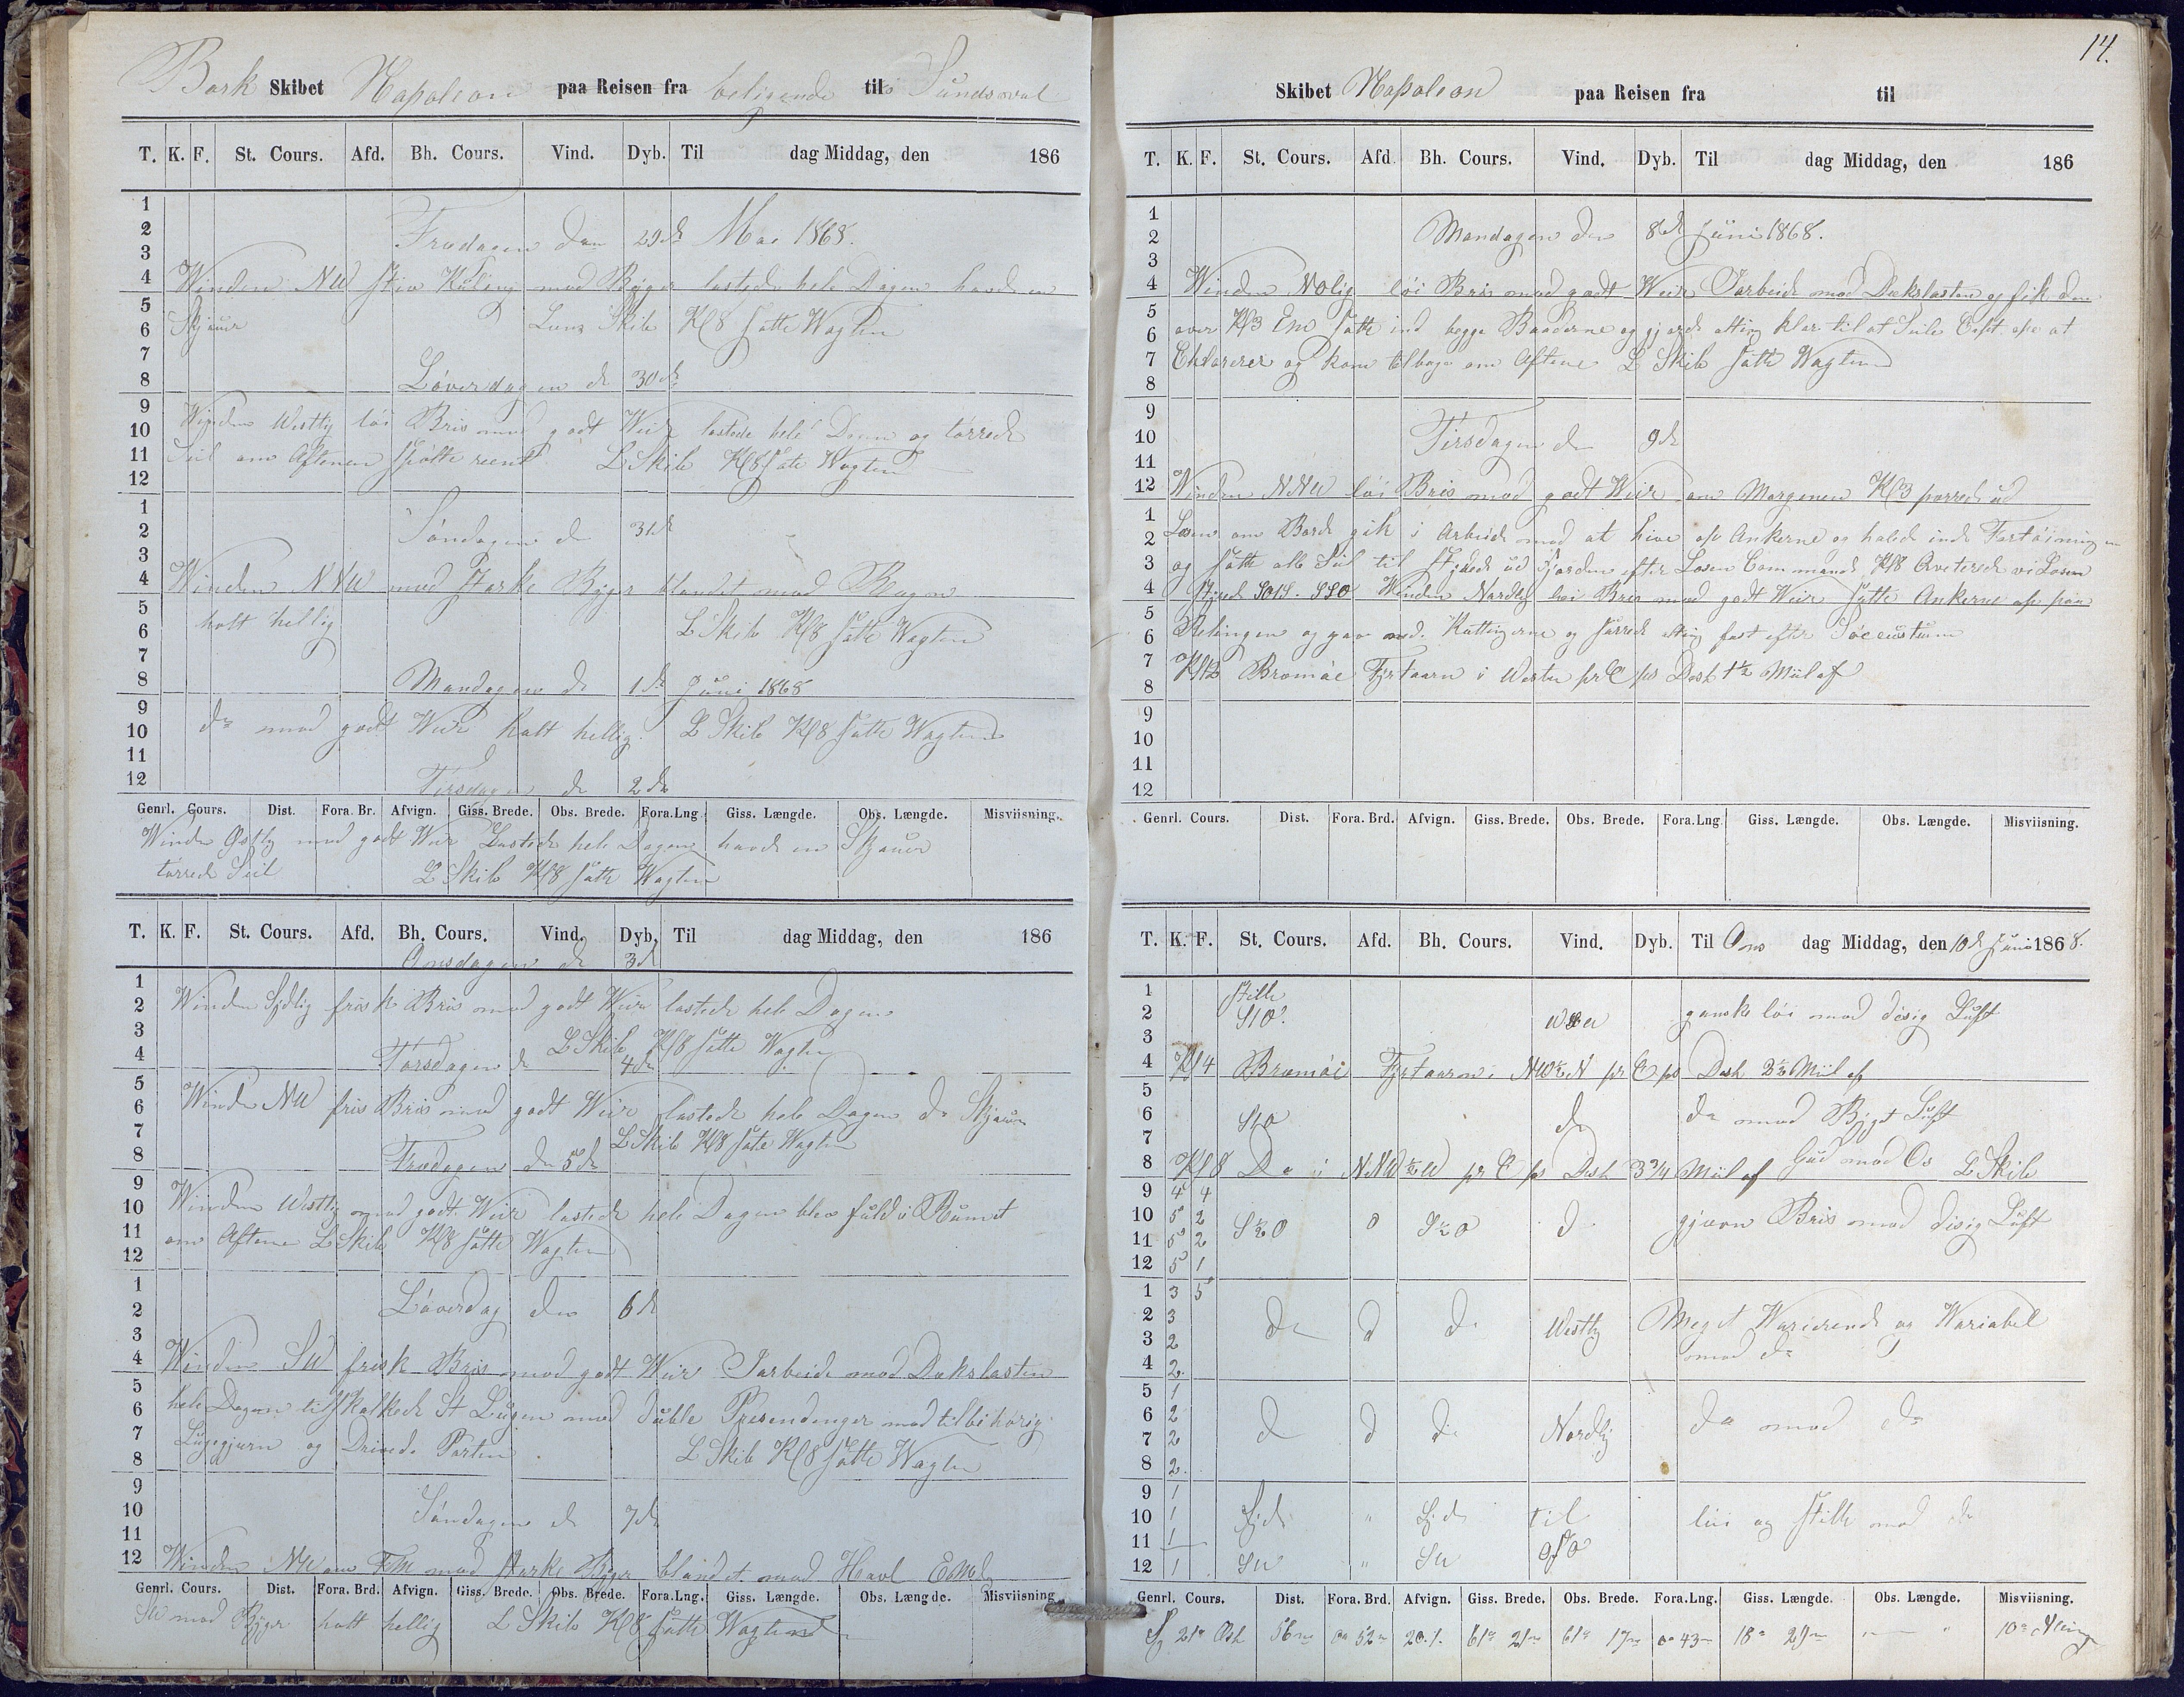 Bark Skibet Napoleon paa Reisen fra beligende til i Sundsvval
T. K. F. St. Cours. Afd. Bh. Cours. Vind. Dyb. Til dag Middag, den 186
1
2 Fredagen den 29de Mai 1868.
3
4 Winden NW stiv Kuling med Byger lastede hele Dagen havde en
5
6 Skjauer Lens Skib Kl 8 satte Wagten
7
8 Löverdagen d 30de
9
10 Winden Westlig löi Bris med godt Weir lastede hele Dagen og törrede
11 Seil om Aftenen spölte reent L Skib Kl 8 satte Wagten
12
1
2 Söndagen d 31d
3
4 Winden NNW med starke Byger blandet med Regn
5
6 holt hellig L Skib Kl 8 satte Wagten
7
8 Mandagen d 1de Juni 1868
9
10 do med godt Weir holt hellig L Skib Kl 8 satte Wagten
11
12 Tirsdagen d 2de
Genrl. Cours. Dist. Fora. Br. Afvign. Giss. Brede. Obs. Brede. Fora.Lng. Giss. Længde. Obs. Længde. Misviisning.
Winden Östlig med godt Weir Lastede hele Dagen havde en Skjauer
törrede Seil L Skib Kl 8 satte Wagten
T. K. F. St. Cours. Afd. Bh. Cours. Vind. Dyb. Til dag Middag, den 186
Onsdagen d 3d
1
2 Winden Sydlig frisk Bris med godt Weir lastede hele Dagen
3 L Skib Kl 8 satte Wagten
4 Torsdagen d 4de
5
6 Winden NW fris Bris med godt Weir lastede hele Dagen do Skjauer
7 L Skib Kl 8 satte Wagten
8 Fredagen den 5de
9
10 Winden Westlig med godt Weir lastede hele Dagen blev fuld i Rumet
11 om Aftenen L Skib Kl 8 satte Wagten
12
1
2 Löverdag den 6d
3
4 Winden SW frisk Bris med godt Weir I arbeide med Dækslasten
5
6 hele Dagen tilskalkede St Lugen med duble Presendenger med tilbehörig
7 Lugejern og Drivede Porten L Skib Kl 8 satte Wagten
8
9
10 Söndagen d 7d
11
12 Winden NW om FM med starke Byger blandet med Havl EMd
Genrl. Cours. Dist. Fora. Brd. Afvign. Giss. Brede. Obs. Brede. Fora.Lng. Giss. Længde. Obs. Længde. Misviisning
SW med Byger holt hellig L Skib Kl 8 satte Wagten
14.
Skibet Napoleon paa Reisen fra til
T. K. F. St. Cours. Afd. Bh. Cours. Vind. Dyb. Til dag Middag, den 186
1
2 Mandagen den 8de Juni 1868.
3
4 Winden NOlig löi Bris med godt Weir I arbeide med Dækslasten og fik den
5
6 over Kl 3 Em satte ind begge Baaderne og gjorde alting klar til at Seile Capt op at
7 Eklarerer og kom tilbage om Aftene L Skib satte Wagten
8
9
10 Tirsdagen d 9de
11
12 Winden NNW löi Bris med godt Weir om Morgenen Kl 3 purrede ud
1
2 Losen om Bord gik i Arbeide med at hive op Ankerne og halede inde Fortöiningen
3 og satte alle Seil til styrede ud Fjorden efter Losen Commando Kl 8 Qveterede vi Losen
4 styrede SOtS. SSO Winden Nordlig löi Bris med godt Weir satte Ankerne op paa
5
6 Relingen og gav ned Kættingerne og surrede alting fast efter Söecustum
7 Kl 12 Bremöe Fyrtaarn i Westen pr C ps Dest 1½ Miil af
8
9
10
11
12
Genrl. Cours. Dist. Fora. Brd. Afvign. Giss. Brede. Obs. Brede. Fora.Lng. Giss. Længde. Obs. Længde. Misviisning.
T. K. F. St. Cours. Afd. Bh. Cours. Vind. Dyb. Til Ons dag Middag, den 10d Juni 1868.
1 stille
2 StO. ganske löi med disig Luft
3
4 Kl 4 Bremöe Fyrtaarn i NW½N pr C ps Dest 2½ Miil af
5
6 StO do do med Bygt Luft
7
8 Kl 8 Do i NNW½W pr C ps Dest 3¾ Miil af Gud med Os L Skib
9 4 4
10 5 2 S½O 0 S½O d gjævn Bris med disig Luft
11 5 2
12 5 1
1 3 5
2 3 do d do Westlig Meget Varierende og Wariabel
3 2 med do
4 2
5 1
6 2 d d do Nordlig do med do
7 2
8 2
9 1
10 1 " til löi og stille med do
11 1
12 1 SW " SW OSO
Genrl. Cours. Dist. Fora. Brd. Afvign. Giss. Brede. Obs. Brede. Fora.Lng. Giss. Længde. Obs. Længde. Misviisning.
S 21° Ost 56m 0° 52m 20.1. 61° 21m 61° 17m 0° 43m 18° 29m " — " 10°